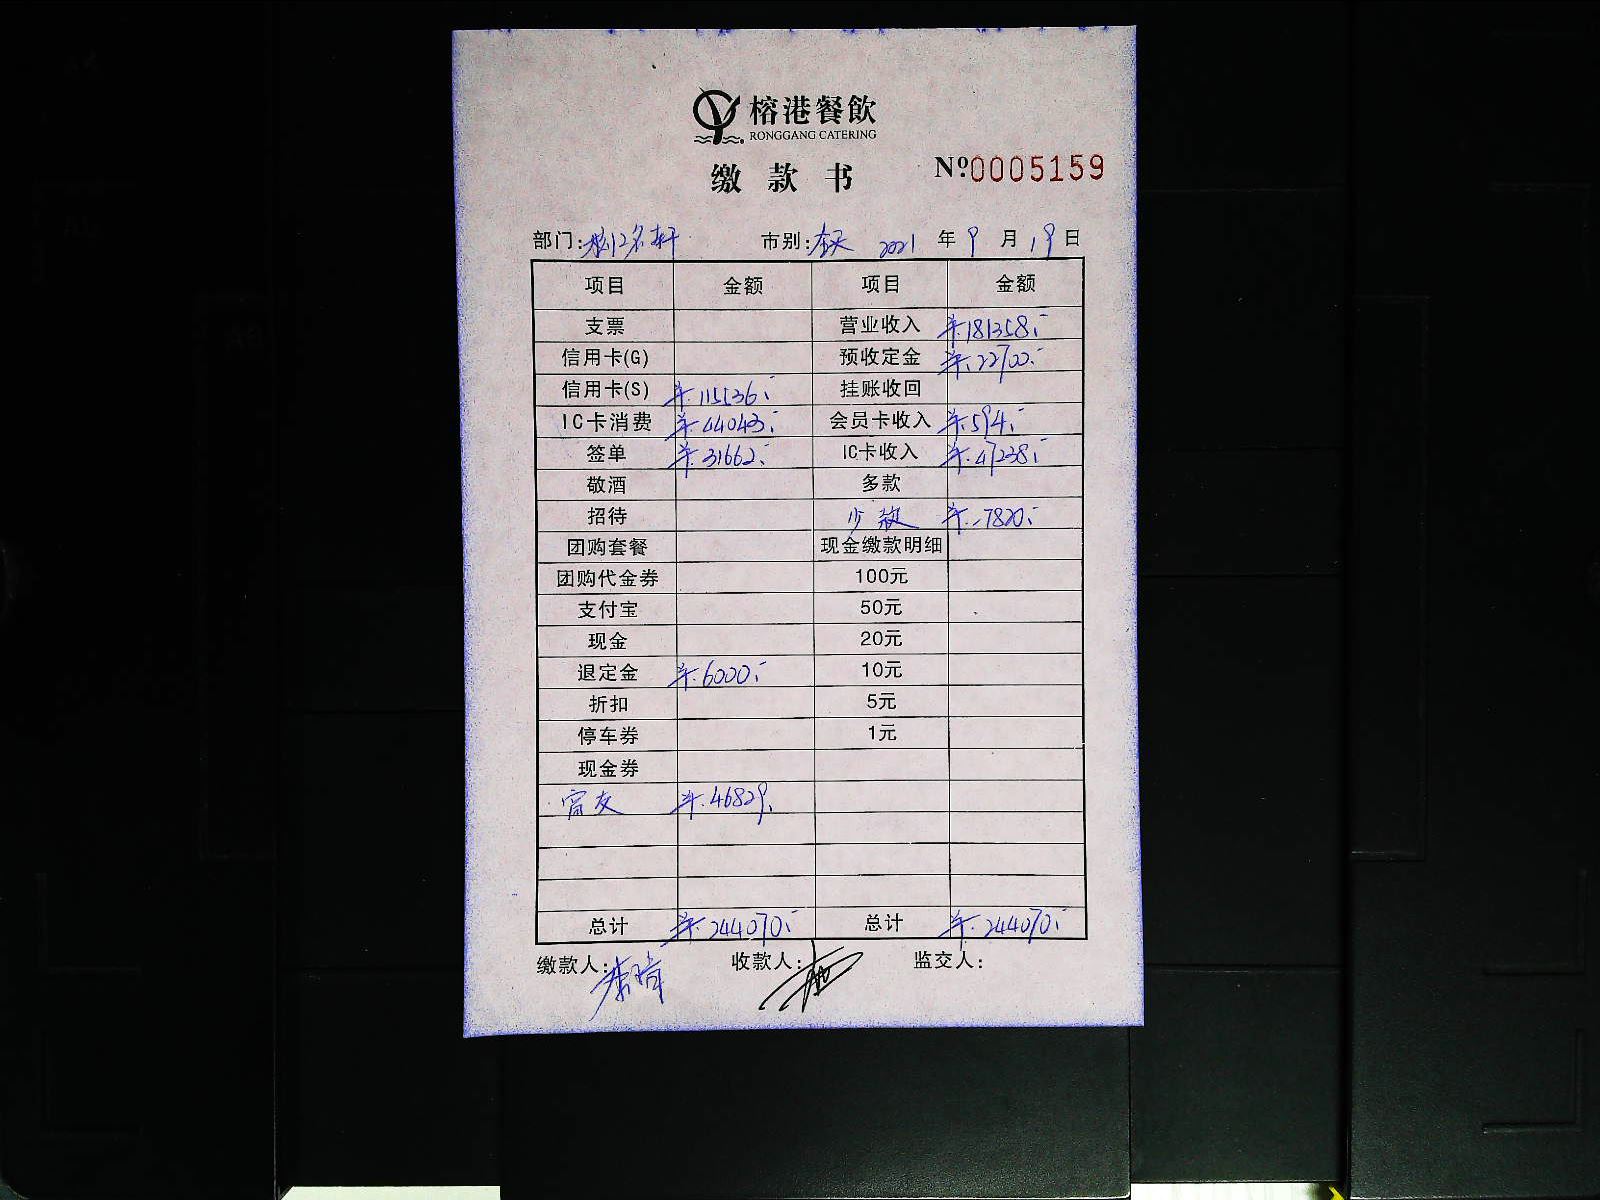 榕港餐飲
RONGGANG CATERING
缴款书 Nº0005159
部门: 名轩 市别:全天 2021年9月19日
项目 金额 项目 金额
支票 营业收入 ¥181358.-
信用卡(G) 预收定金 ¥.22700.-
信用卡(S) ¥.115536.- 挂账收回
IC卡消费 ¥44043.- 会员卡收入 ¥.594.-
签单 ¥.31662.- IC卡收入 ¥.47238.-
敬酒 多款
招待 少款 ¥.-7820.-
团购套餐 现金缴款明细
团购代金券 100元
支付宝 50元
现金 20元
退定金 ¥.6000.- 10元
折扣 5元
停车券 1元
现金券
富友 ¥.46829.
总计 ¥.244070.- 总计 ¥.244070.-
缴款人: 收款人: 监交人: